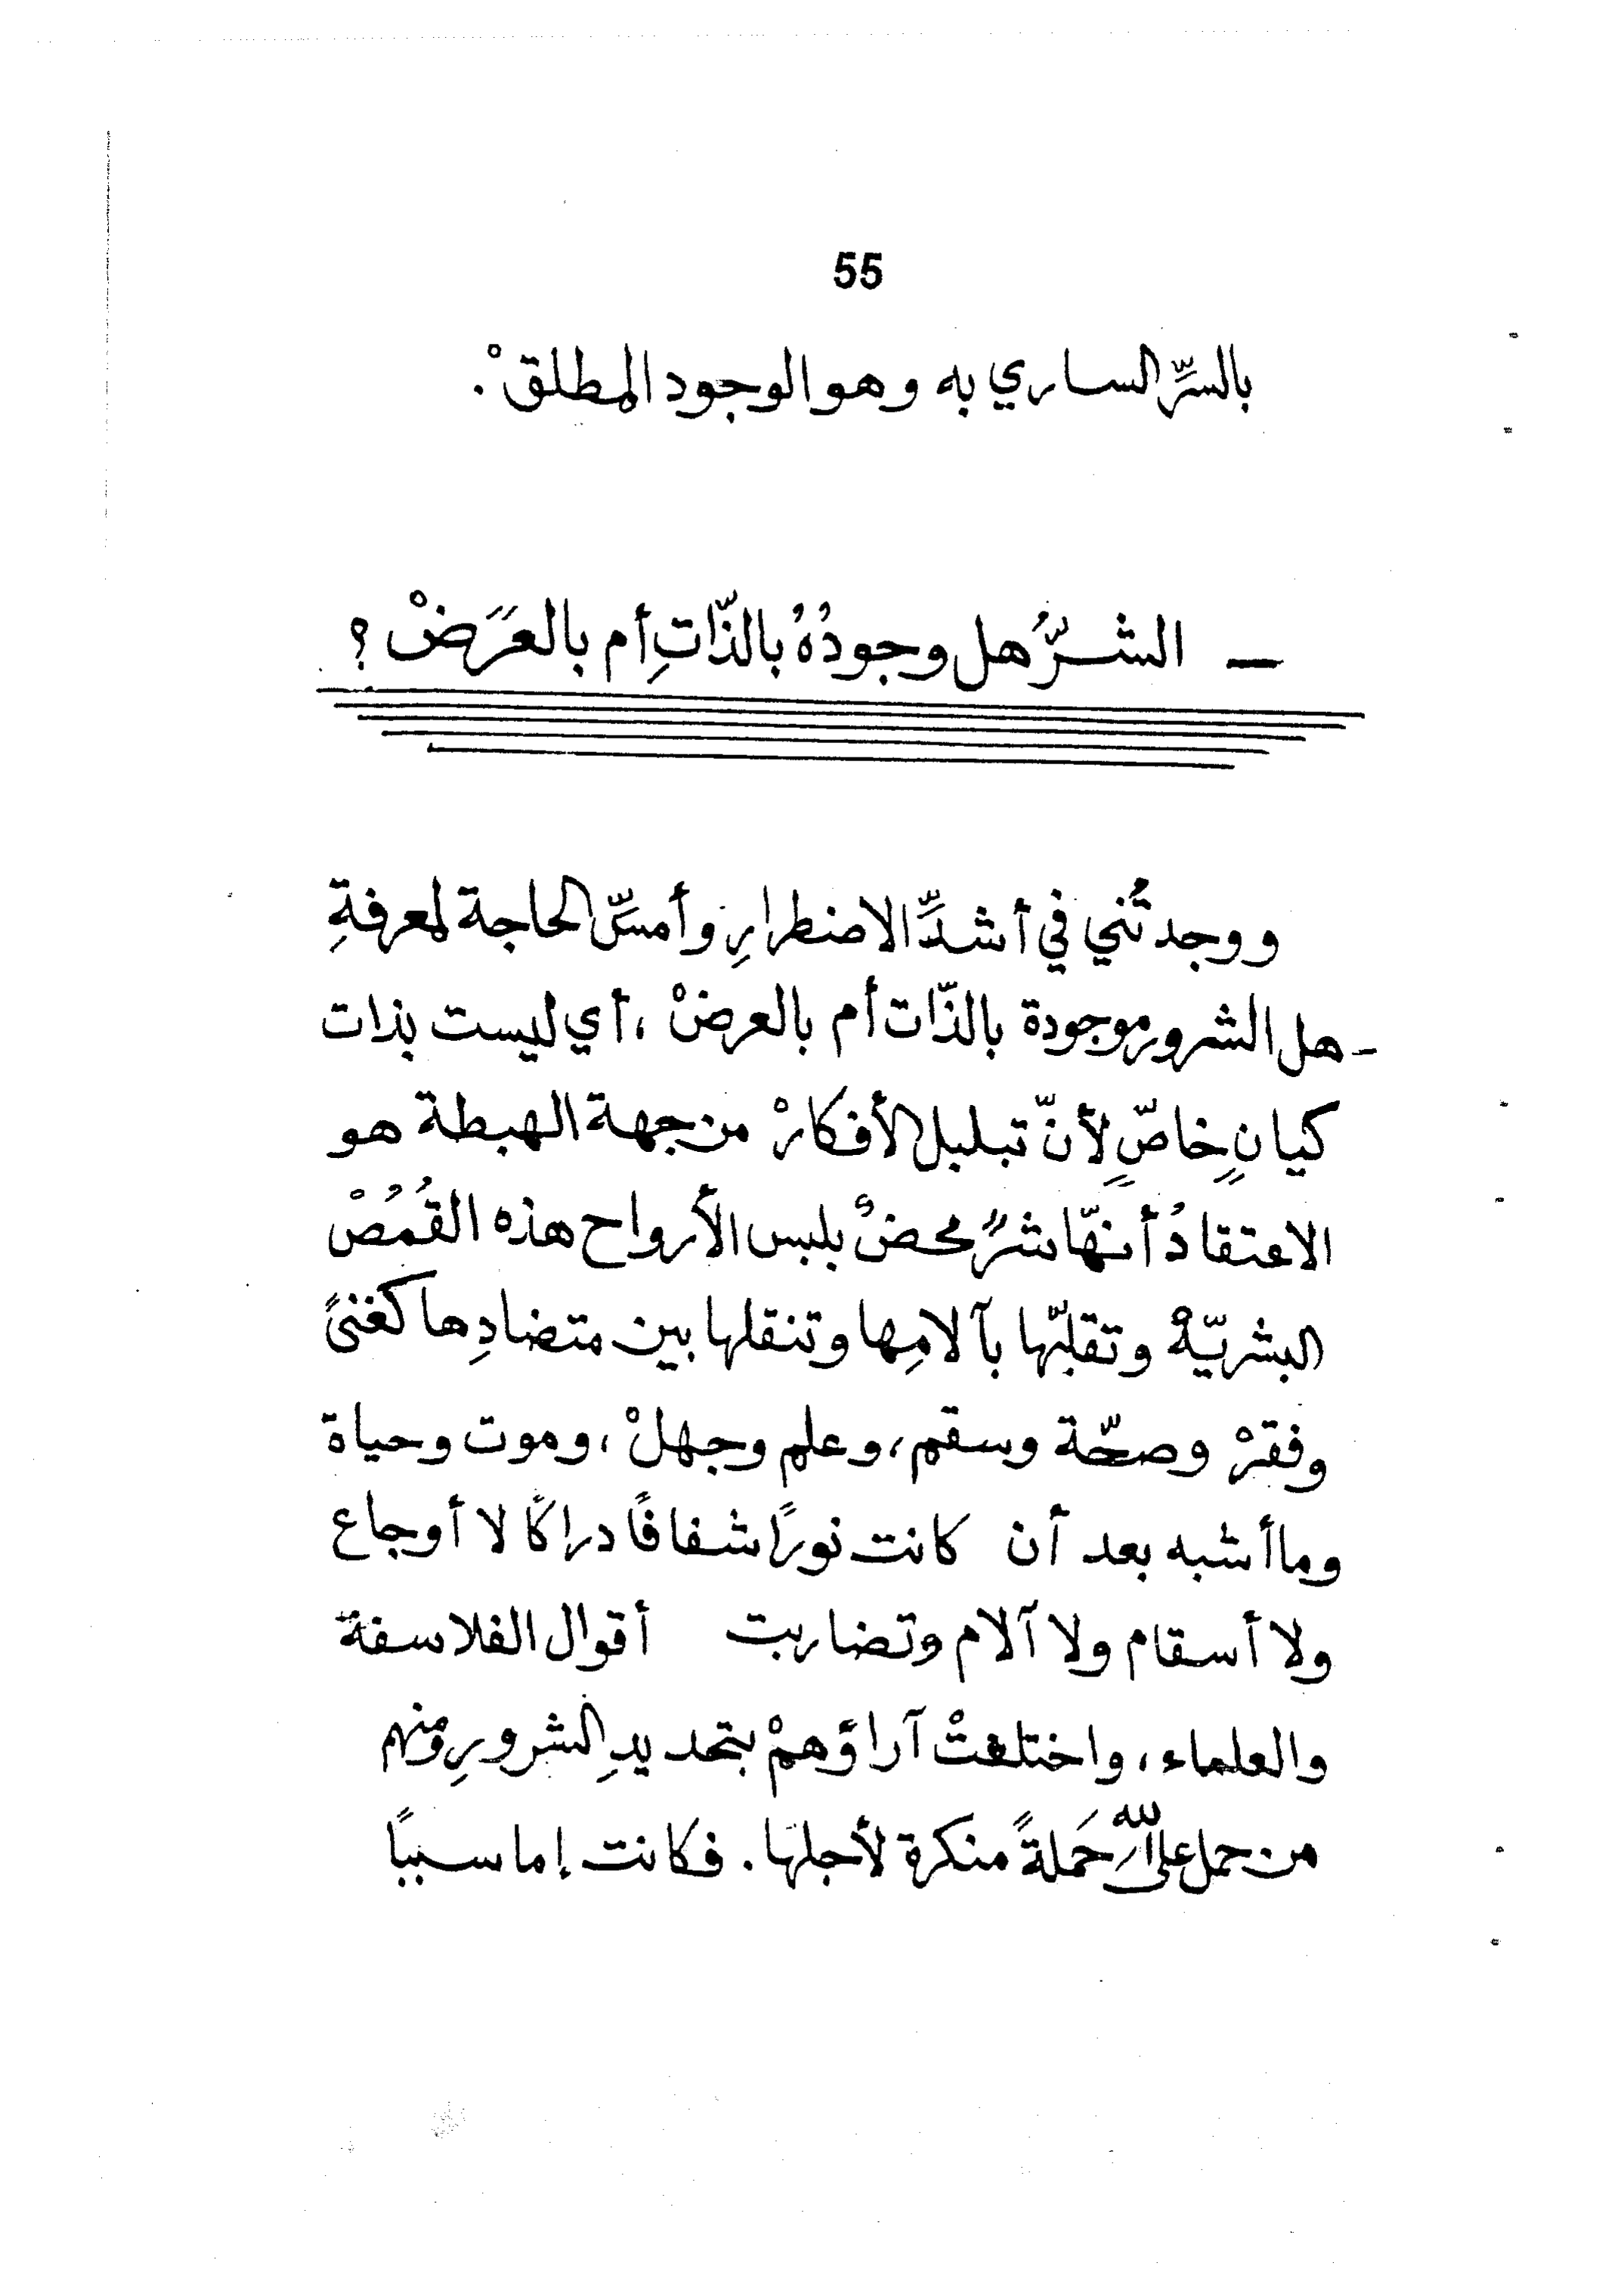 55
بالسرِّ الساري به وهو الوجود المطلقْ .
ـ الشرُّ هل وجودُهُ بالذّاتِ أم بالعَرَضْ ؟
ووجدتُني في أشدِّ الاضطرارِ وأمسِّ الحاجة لمعرفةِ
ـ هل الشرور موجودة بالذّات أم بالعرضْ ، أي ليست بذات
كيانٍ خاصٍّ لأنّ تبلبل الأفكارْ من جهة الهبطة هو
الاعتقادُ أنهّا شرٌ محضٌ بلبس الأرواح هذه القُمُصْ
البشريّهْ وتقلبّها بآلامِها وتنقلها بين متضادِها كغنىً
وفقرْ وصحّة وسقم ، وعلم وجهلْ ، وموت وحياة
وما أشبه بعد أن كانت نورًا شفافًا دراكًا لا أوجاع
ولا أسقام ولا آلام وتضاربت أقوال الفلاسفة
والعلماء ، واختلفتْ آراؤهمْ بتحديدِ الشرورِ ومنهم
من حمل على اللّهِ حَملةً منكرة لأجلها . فكانت إما سببًا